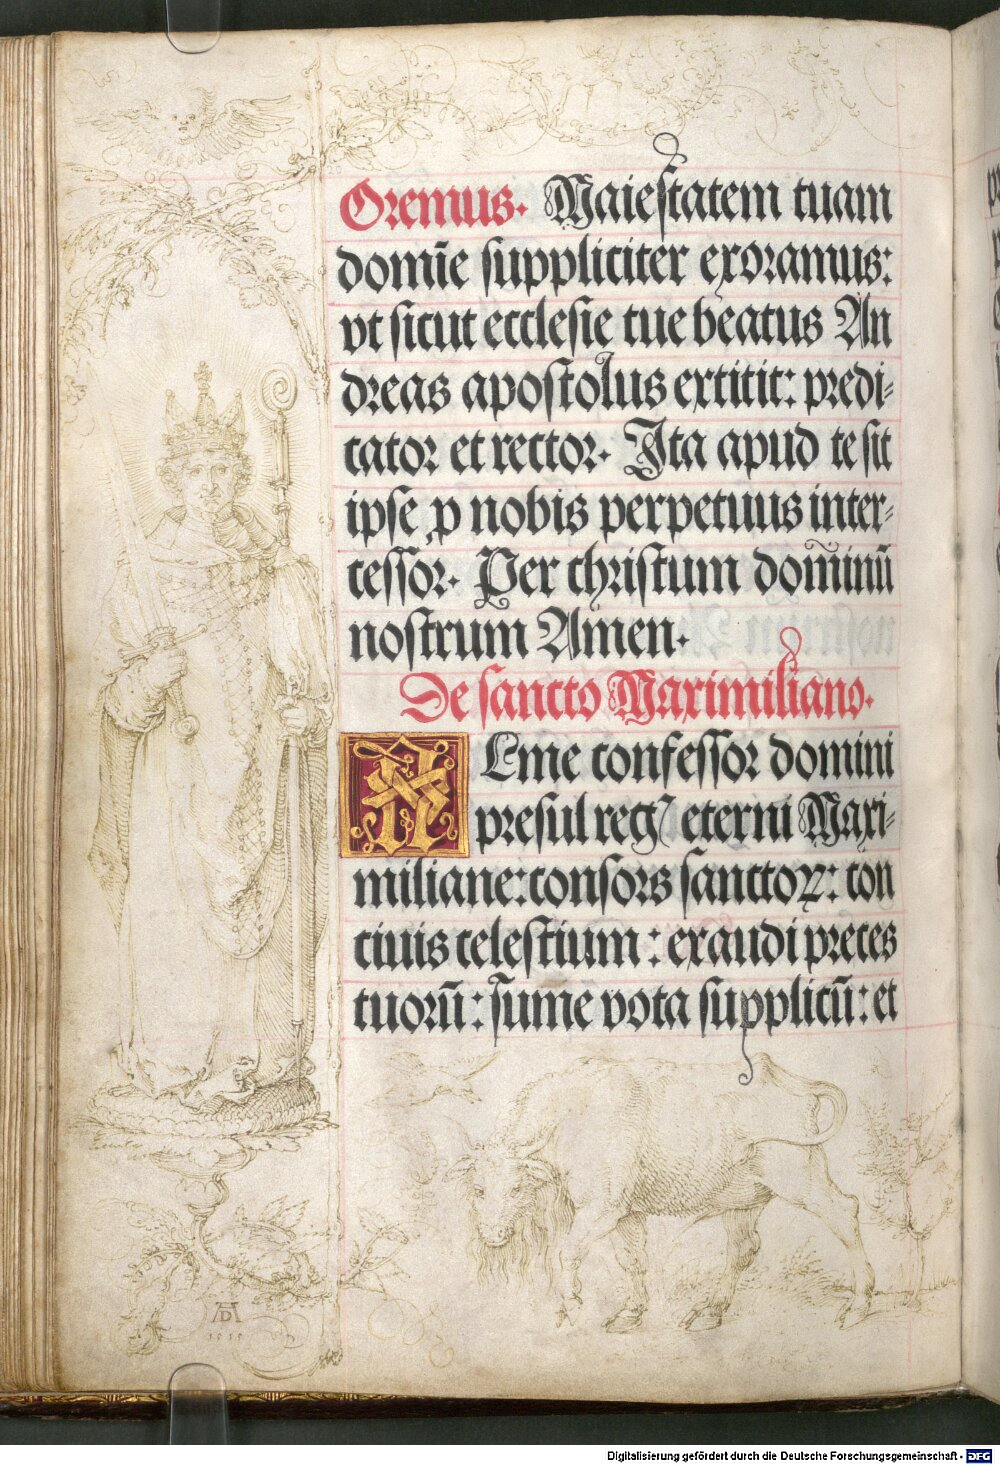 Oremus. Maiestatem tuam
domīe suppliciter exoramus:
vt sicut ecclesie tue beatus An
dreas apostolus extitit: predi-
cator et rector. Ita apud te sit
ipse ꝓ nobis perpetuus inter-
cessor. Per christum dominū
nostrum Amen.
De sancto Maximiliano.
ALme confessor domini
presul regꝭ eterni Maxi-
miliane: consors sanctoꝝ: con
ciuis celestium: exaudi preces
tuorū: sume vota supplicū: et
AD
Digitalisierung gefördert durch die Deutsche Forschungsgemeinschaft - DFG